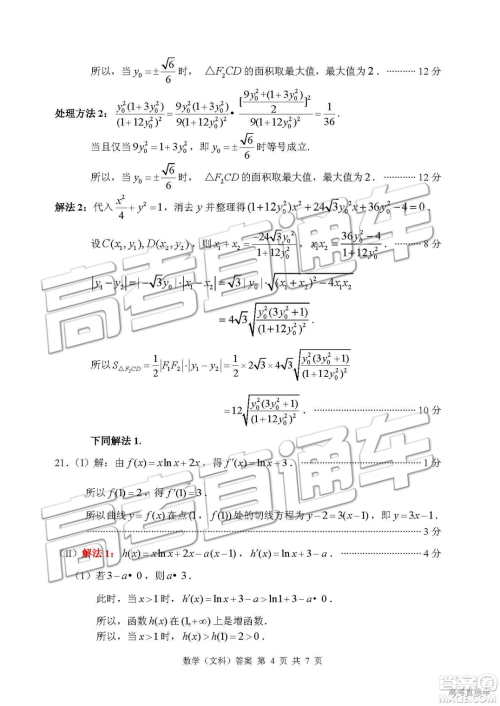 所以，当 y₀=±√6/6 时， △F₂CD 的面积取最大值，最大值为 2．············ 12 分
处理方法 2： y₀²(1+3y₀²)/(1+12y₀²)² = 9y₀²(1+3y₀²)/9(1+12y₀²)² • [(9y₀²+(1+3y₀²))/2]²/9(1+12y₀²)² = 1/36．
当且仅当 9y₀²=1+3y₀²，即 y₀=±√6/6 时等号成立．
所以，当 y₀=±√6/6 时， △F₂CD 的面积取最大值，最大值为 2．············ 12 分
解法 2：代入 x²/4+y²=1，消去 y 并整理得 (1+12y₀²)x²+24√3y₀²x+36y₀²−4=0．
设 C(x₁,y₁), D(x₂,y₂)，则 x₁+x₂=−24√3y₀²/(1+12y₀²)， x₁x₂=(36y₀²−4)/(1+12y₀²)．········ 8 分
|y₁−y₂|=|−√3y₀|·|x₁−x₂|=√3|y₀|√((x₁+x₂)²−4x₁x₂)
=4√3√(y₀²(3y₀²+1)/(1+12y₀²)²)．
所以 S△F₂CD=1/2|F₁F₂|·|y₁−y₂|=1/2×2√3×4√3√(y₀²(3y₀²+1)/(1+12y₀²)²)
=12√(y₀²(3y₀²+1)/(1+12y₀²)²)．············ 10 分
下同解法 1.
21．(Ⅰ) 解：由 f(x)=xlnx+2x，得 f′(x)=lnx+3．············ 1 分
所以 f(1)=2，得 f′(1)=3．
所以曲线 y=f(x) 在点 (1, f(1)) 处的切线方程为 y−2=3(x−1)，即 y=3x−1．
············ 3 分
(Ⅱ) 解法 1：h(x)=xlnx+2x−a(x−1)，h′(x)=lnx+3−a．············ 4 分
(1) 若 3−a•0，则 a•3．
此时，当 x>1 时，h′(x)=lnx+3−a>ln1+3−a•0
所以，函数 h(x) 在 (1,+∞) 上是增函数．
所以，当 x>1 时，h(x)>h(1)=2>0．
数学（文科）答案 第 4 页 共 7 页
高考直通车